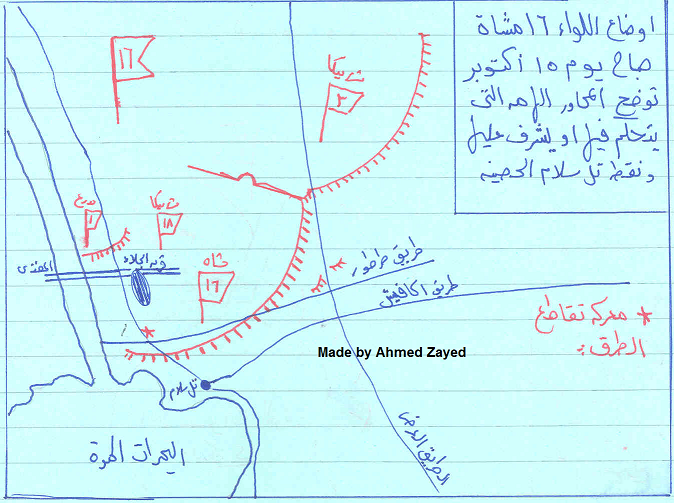 اوضاع اللواء ١٦ مشاة
صباح يوم ١٥ أكتوبر
توضح المحاور الهامه التى
يتحكم فيها او يشرف عليها
ونقط تل سلام الحصينه
١٦
ث بيكا
٣
مدرع
١
ث بيكا
١٨
مشاه
١٦
قريه الجلاء
طريق طرطور
طريق اكافيش
معركه تقاطع
الطرق
Made by Ahmed Zayed
تل سلام
الطريق العرضى
البحيرات المرة